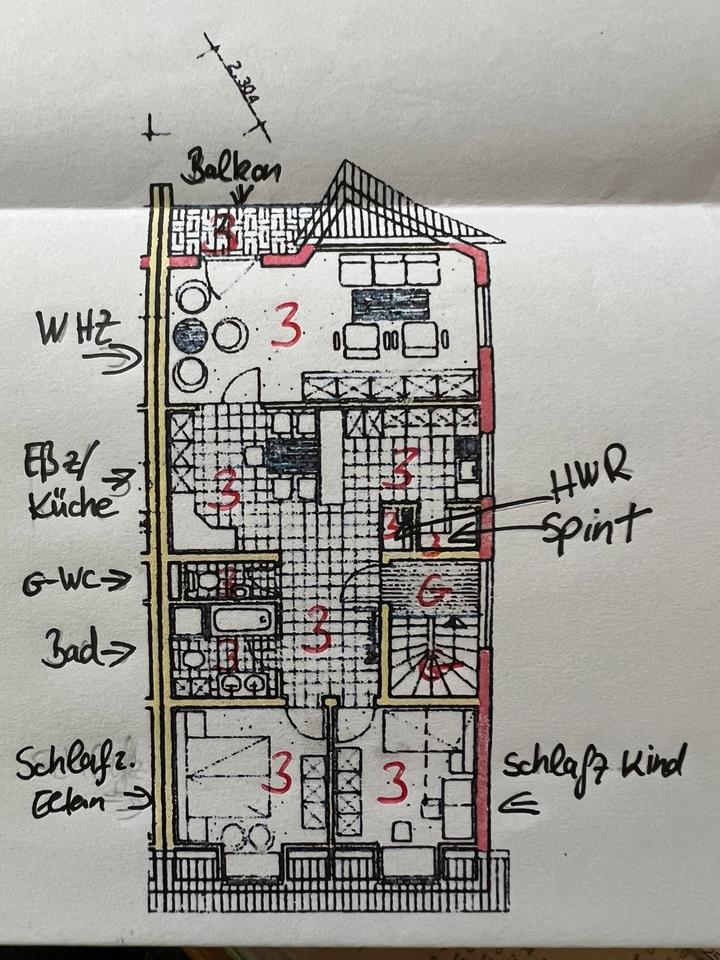 2.304
Balkon
3
WHZ
3
Eßz/
Küche
3
3
HWR
Spint
3
3
G-WC
3
G
Bad
3
3
G
Schlafz.
Eltern
3
3
Schlafz Kind